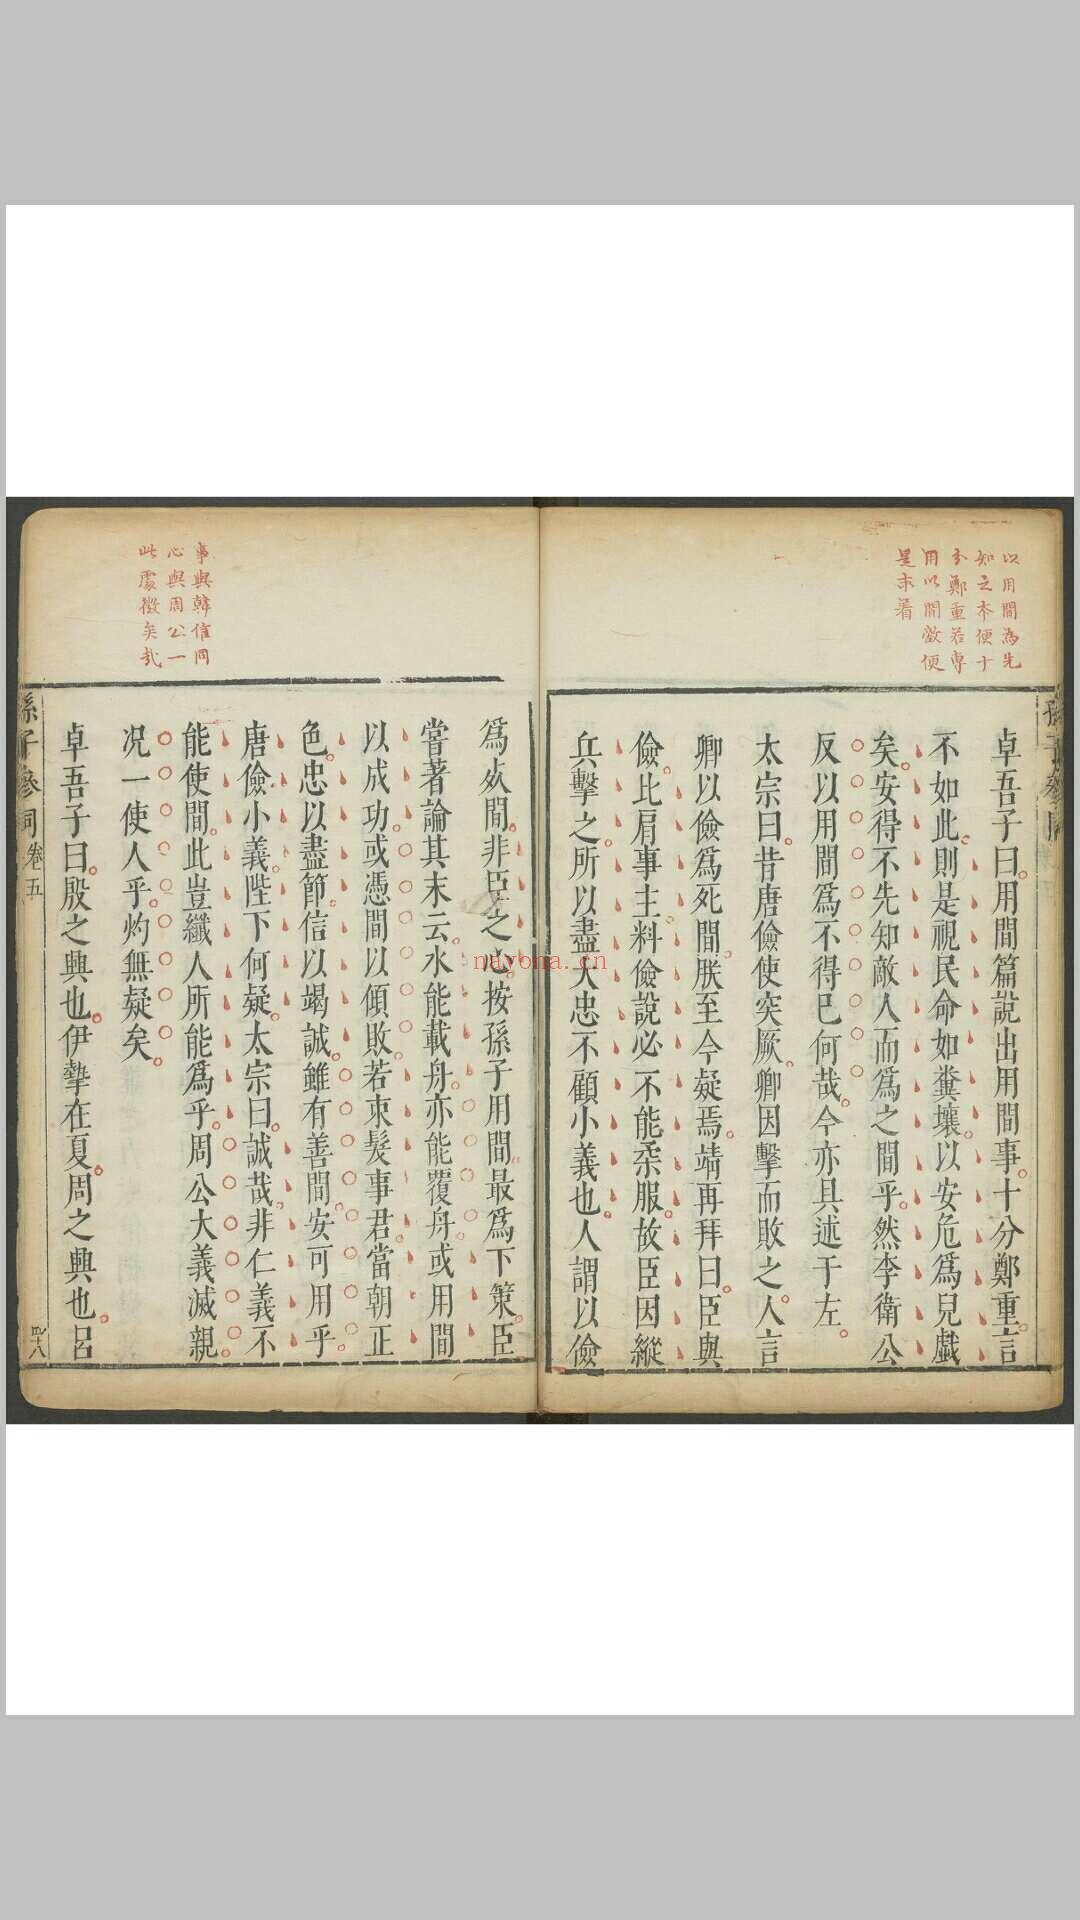 以用間為先
知之本便十
分鄭重若專
用以間敵便
是末着
卓吾子曰用間篇說出用間事十分鄭重言
不如此則是視民命如糞壤以安危爲兒戱
矣安得不先知敵人而爲之間乎然李衛公
反以用間爲不得已何哉今亦具述于左
太宗曰昔唐儉使突厥卿因擊而敗之人言
卿以儉爲死間朕至今疑焉靖再拜曰臣與
儉比肩事主料儉說必不能柔服故臣因縱
兵擊之所以盡大忠不顧小義也人謂以儉
事與韓信同
心與周公一
此處微矣哉
爲死間非臣之心按孫子用間最爲下策臣
嘗著論其末云水能載舟亦能覆舟或用間
以成功或憑間以傾敗若束髮事君當朝正
色忠以盡節信以竭誠雖有善間安可用乎
唐儉小義陛下何疑太宗曰誠哉非仁義不
能使間此豈纖人所能爲乎周公大義滅親
况一使人乎灼無疑矣
卓吾子曰殷之興也伊摯在夏周之興也呂
孫子參同卷五
四十八
nayona.cn